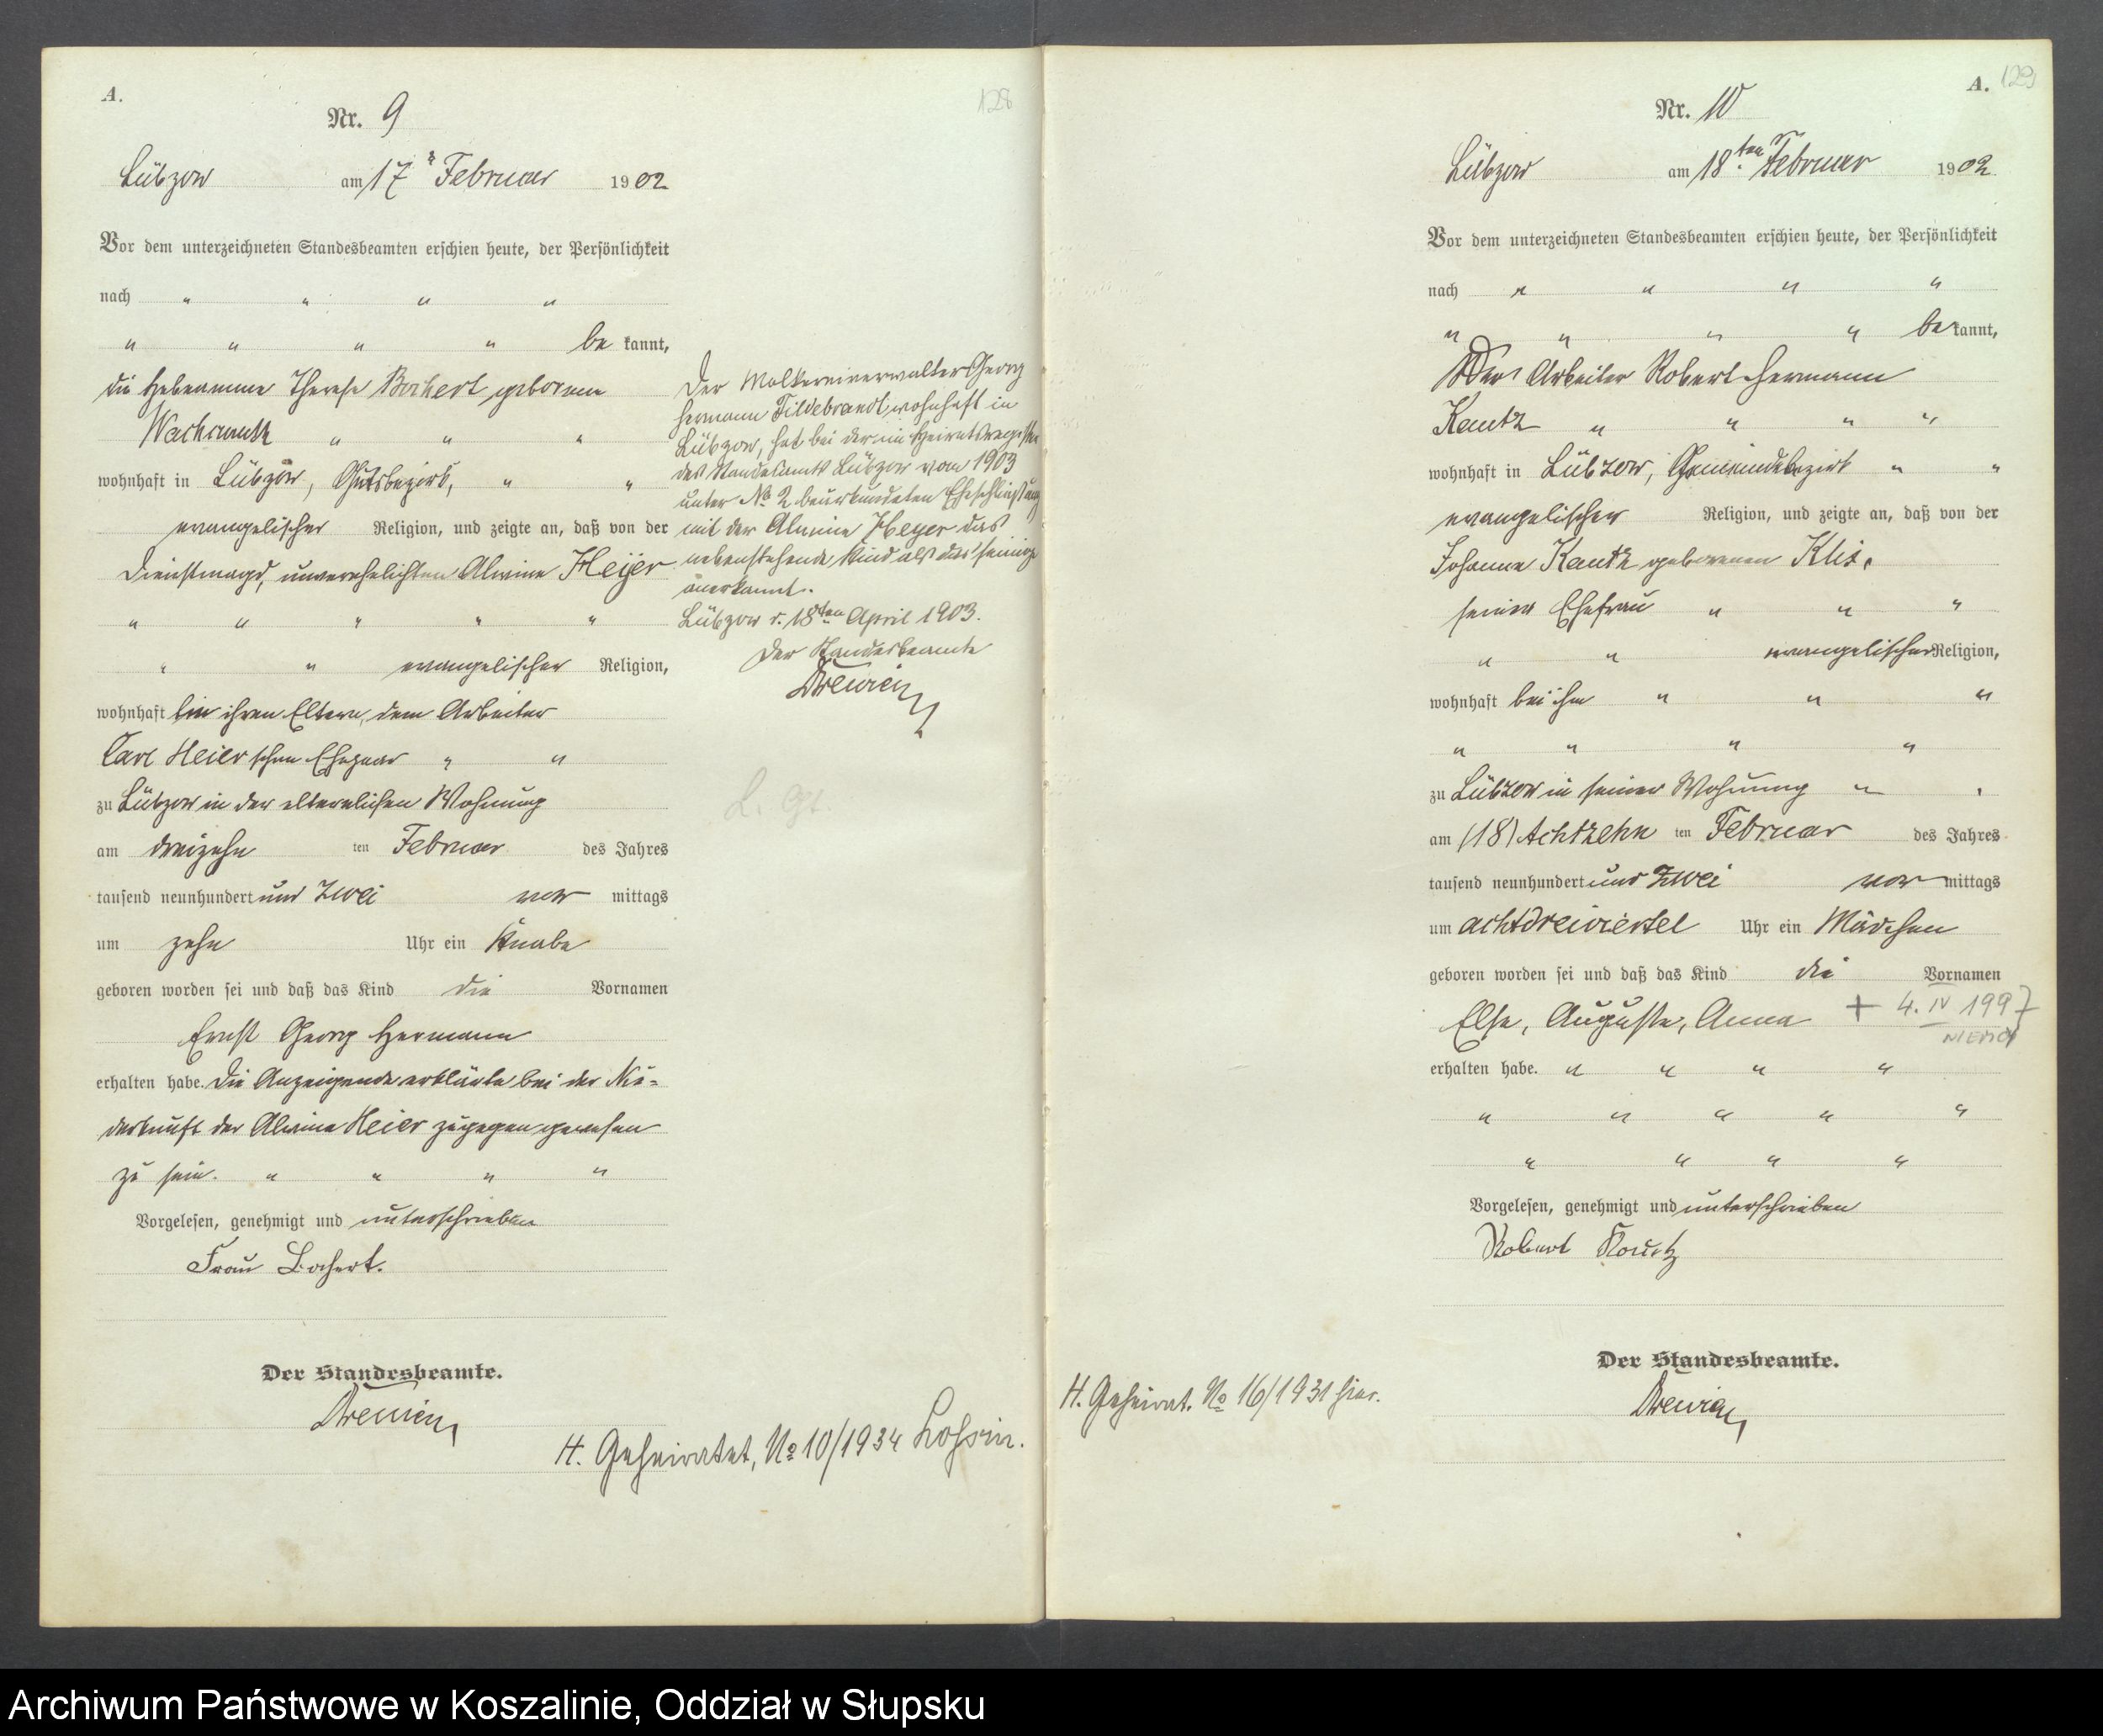 A.
128
Nr. 9
Lübzow am 17 Februar 1902
Vor dem unterzeichneten Standesbeamten erschien heute, der Persönlichkeit
nach " " " "
" " " " be kannt,
die Hebeamme Therese Bochert geborene
Wachsmuth " " "
wohnhaft in Lübzow, Gutsbezirk, " "
evangelischer Religion, und zeigte an, daß von der
Dienstmagd, unverehelichten Alwine Heijer
" " " " "
" " evangelischer Religion,
wohnhaft bei ihren Eltern, dem Arbeiter
Carl Heier schen Ehepaar " "
zu Lübzow in der elterlichen Wohnung
am dreizehn ten Februar des Jahres
tausend neunhundert und zwei vor mittags
um zehn Uhr ein Knabe
geboren worden sei und daß das Kind die Vornamen
Ernst Georg Hermann
erhalten habe. Die Anzeigende erklärte bei der Nie-
derkunft der Alwine Heier zugegen gewesen
zu sein. " " " "
Vorgelesen, genehmigt und unterschrieben
Frau Bochert.
Der Standesbeamte.
Drewien
Der Molkereiverwalter Georg
Hermann Hildebrandt, wohnhaft in
Lübzow, hat bei der im Heiratsregister
des Standesamts Lübzow vom 1903
unter No 2 beurkundeten Eheschließung
mit der Alwine Heyer das
nebenstehende Kind als das seinige
anerkannt.
Lübzow d. 18ten April 1903.
Der Standesbeamte
Drewien
H. Geheiratet, No 10/1934
A.
129
Nr. 10
Lübzow am 18ten Februar 1902
Vor dem unterzeichneten Standesbeamten erschien heute, der Persönlichkeit
nach " " " "
" " " " be kannt,
Der Arbeiter Robert Hermann
Kautz " " " "
wohnhaft in Lübzow, Gemeindebezirk " "
evangelischer Religion, und zeigte an, daß von der
Johanne Kautz geborenen Klix,
seiner Ehefrau " " "
" " evangelischer Religion,
wohnhaft bei ihm " " "
" " " "
zu Lübzow in seiner Wohnung " "
am (18) Achtzehn ten Februar des Jahres
tausend neunhundert und zwei vor mittags
um achtdreiviertel Uhr ein Mädchen
geboren worden sei und daß das Kind die Vornamen
Else, Auguste, Anna + 4. IV 1997
erhalten habe. " " " "
" " " " "
" " " "
Vorgelesen, genehmigt und unterschrieben
Robert Kautz
Der Standesbeamte.
Drewien
H. Geheirat. No 16/1931 hier.
Archiwum Państwowe w Koszalinie, Oddział w Słupsku